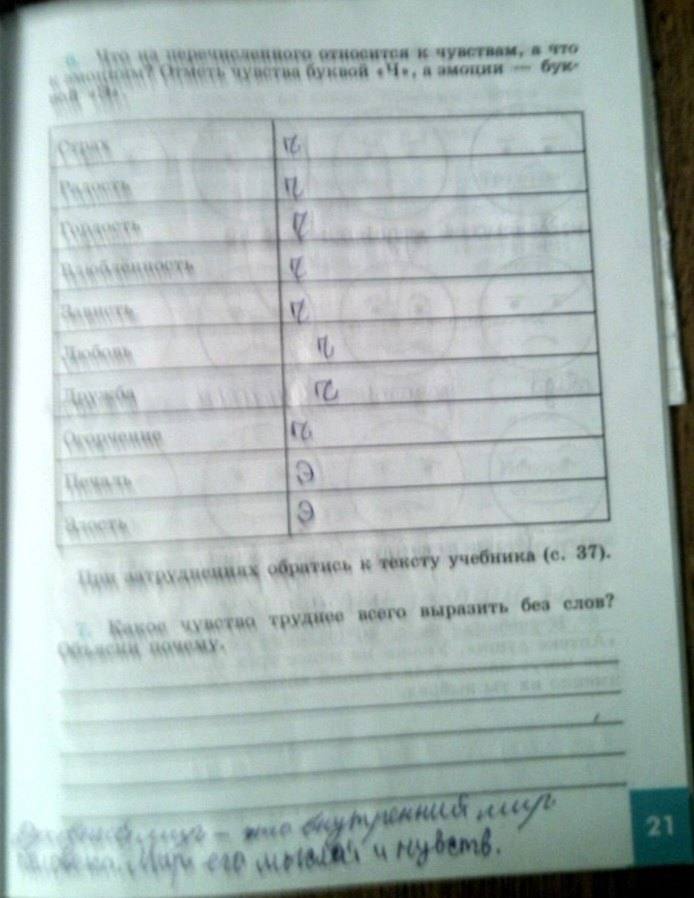 6. Что из перечисленного относится к чувствам, а что
к эмоциям? Отметь чувства буквой «Ч», а эмоции — бук-
вой «Э».
Страх Ч
Радость Ч
Гордость Ч
Влюблённость Ч
Зависть Ч
Любовь Ч
Дружба Ч
Огорчение Ч
Печаль Э
Злость Э
При затруднениях обратись к тексту учебника (с. 37).
7. Какое чувство труднее всего выразить без слов?
Объясни почему.
мир – это внутренний мир
человека. Мир его мыслей и чувств.
21